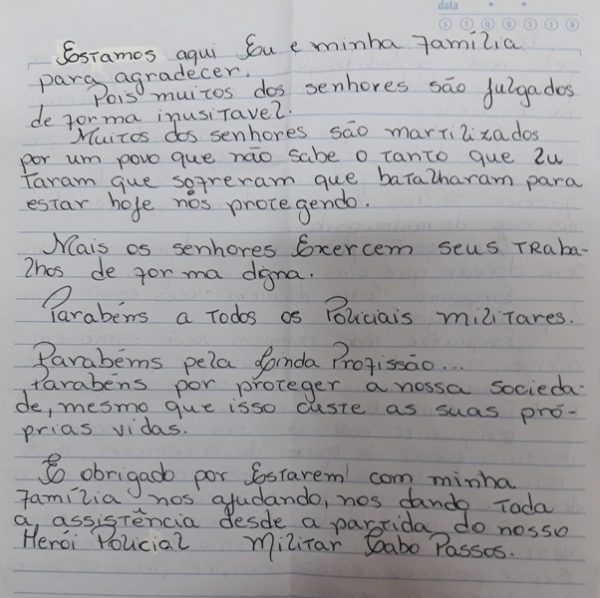 data
Estamos aqui Eu e minha família
para agradecer.
Pois muitos dos senhores são julgados
de forma inusitavel.
Muitos dos senhores são martilizados
por um povo que não sabe o tanto que lu
taram que sofreram que batalharam para
estar hoje nos protegendo.
Mais os senhores Exercem seus Traba-
lhos de forma dgna.
Parabéns a todos os Policiais militares.
Parabéns pela Linda Profissão...
Parabéns por proteger a nossa socieda-
de, mesmo que isso custe as suas pró-
prias vidas.
E obrigado por Estarem com minha
família nos ajudando, nos dando toda
a assistência desde a partida do nosso
Herói Policial Militar Cabo Passos.